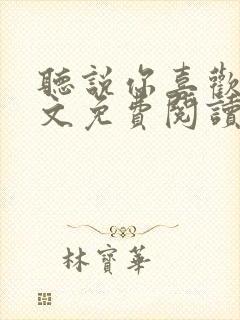 聽說你喜歡
文免費閱讀
林寶華